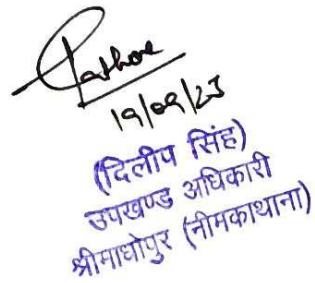 Rathore
19/09/23
(दिलीप सिंह)
उपखण्ड अधिकारी
श्रीमाधोपुर (नीमकाथाना)